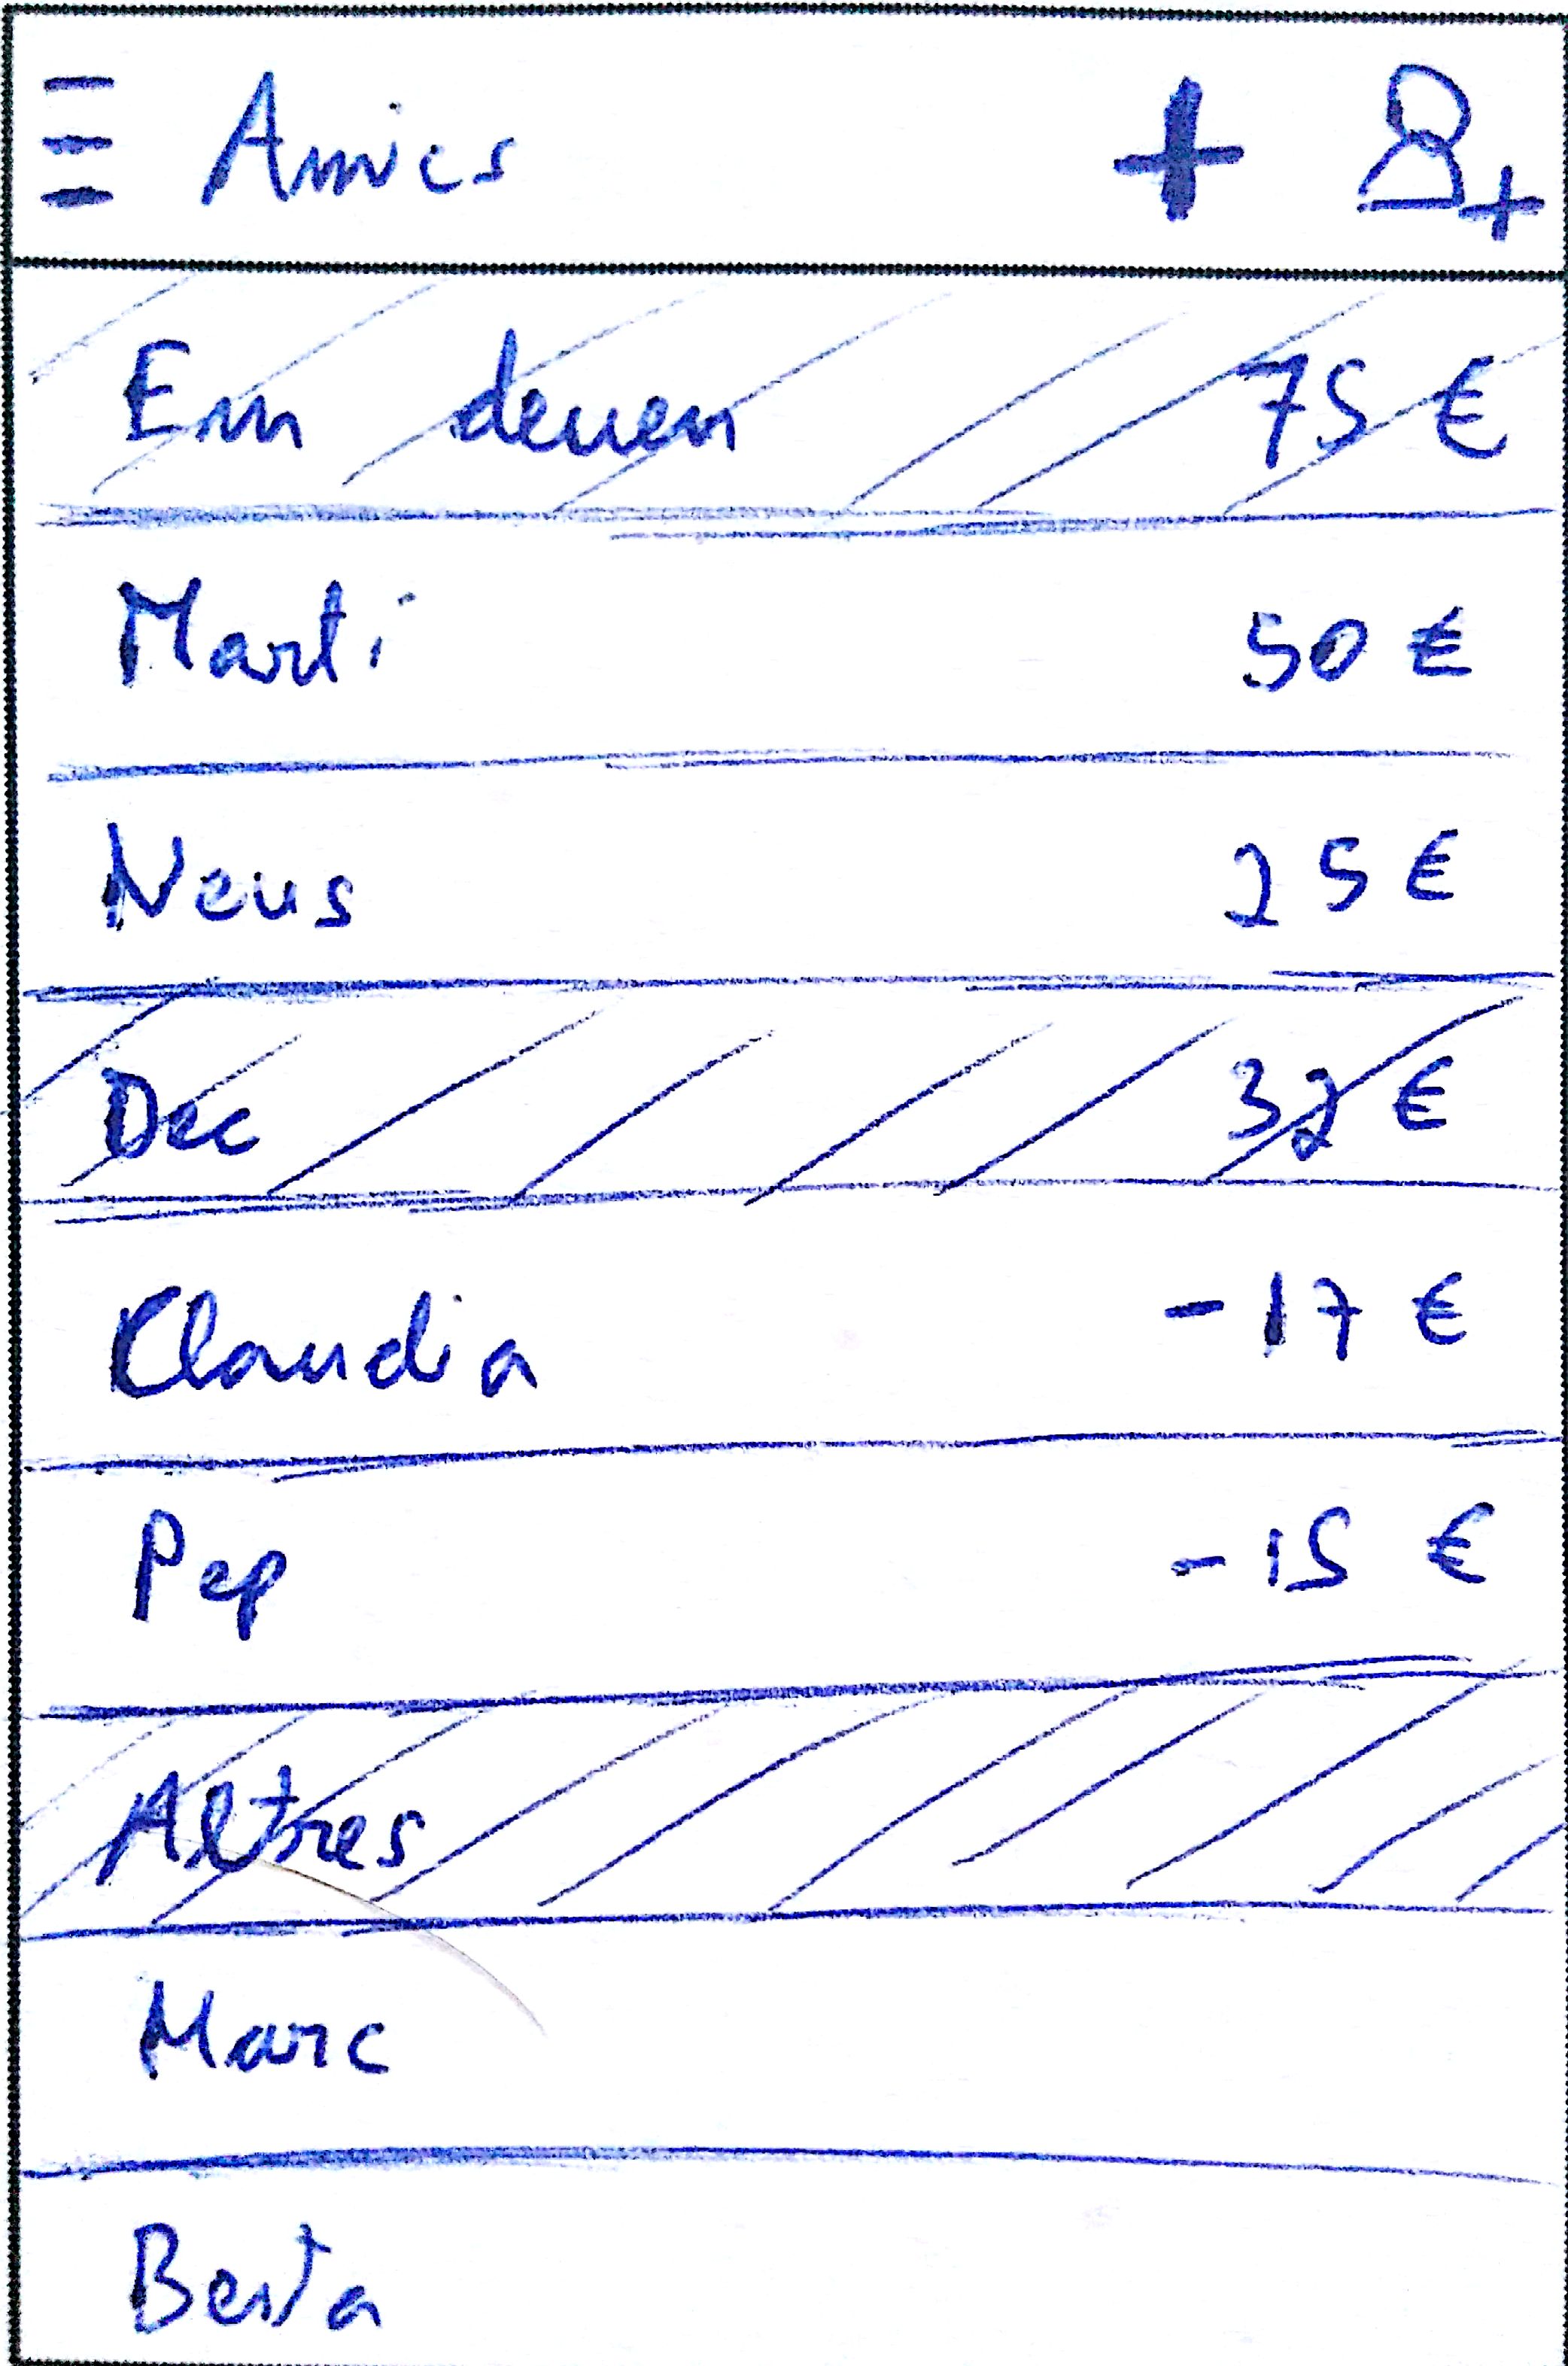 Amics
Em deuen 75 €
Martí 50 €
Neus 25 €
Dec 32 €
Claudia -17 €
Pep -15 €
Altres
Marc
Berta